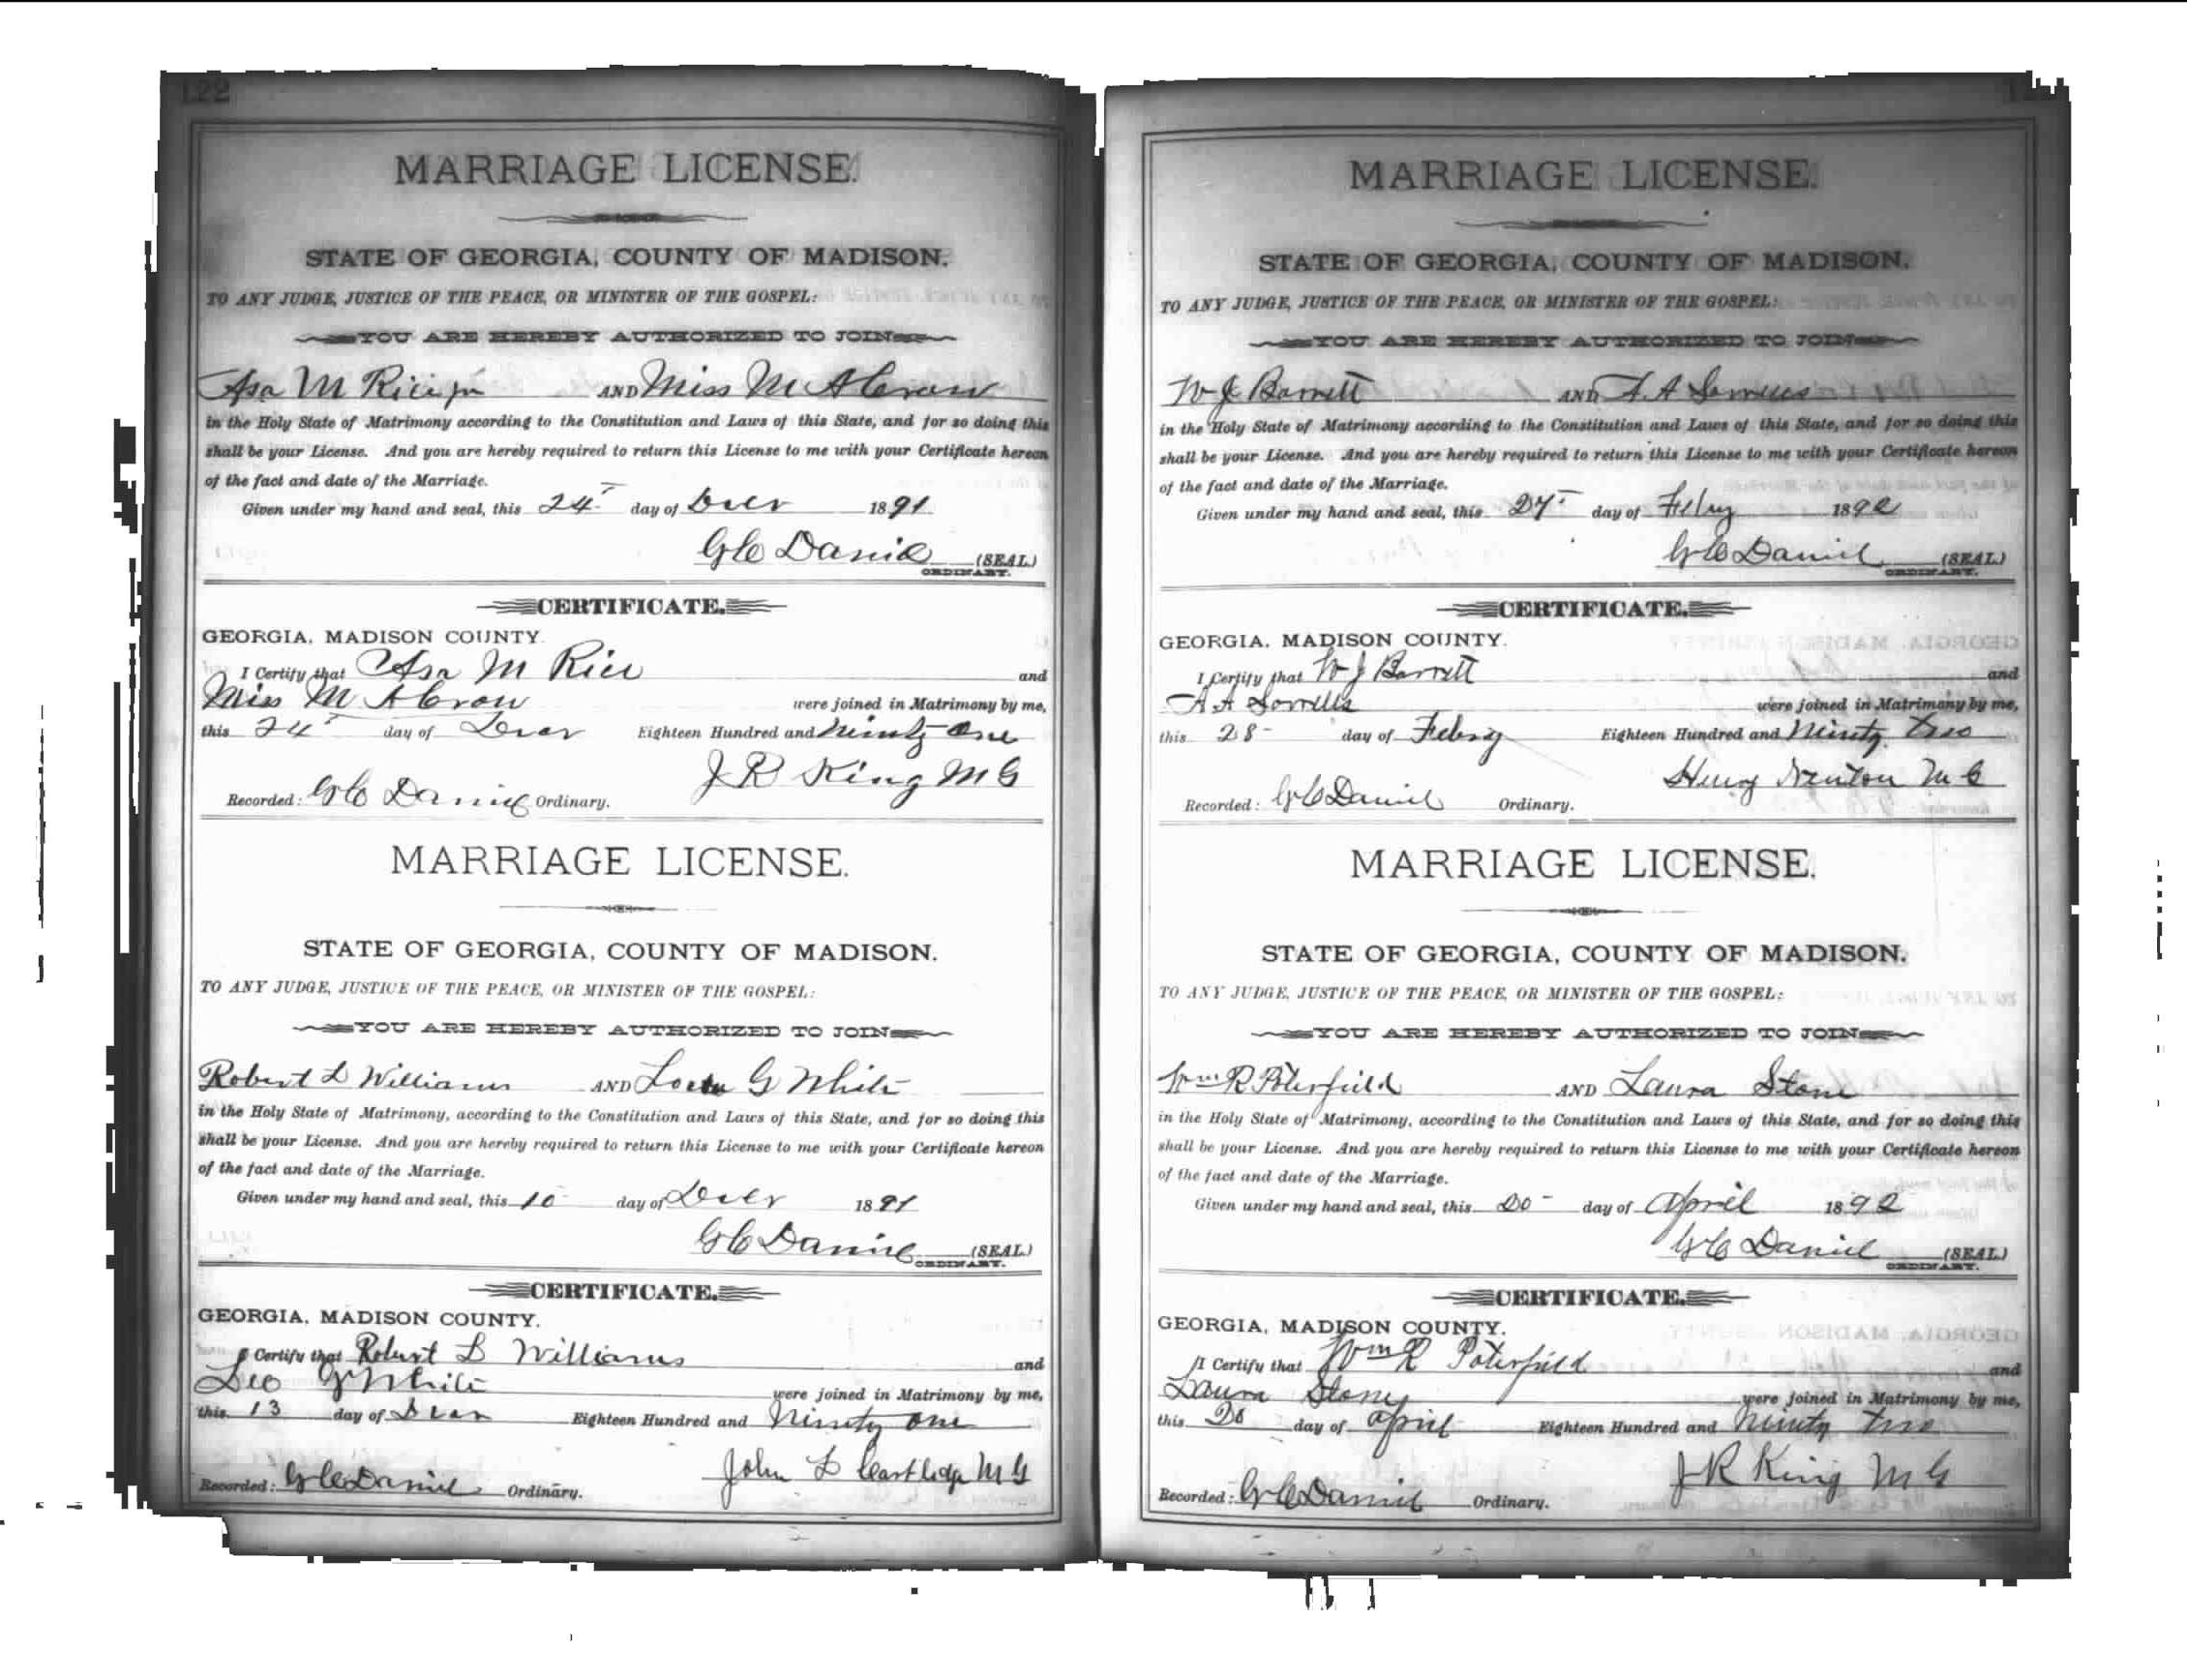 122
MARRIAGE LICENSE.
STATE OF GEORGIA, COUNTY OF MADISON.
TO ANY JUDGE, JUSTICE OF THE PEACE, OR MINISTER OF THE GOSPEL:
YOU ARE HEREBY AUTHORIZED TO JOIN
Asa M Rice jr AND Miss M A Crow
in the Holy State of Matrimony according to the Constitution and Laws of this State, and for so doing this
shall be your License. And you are hereby required to return this License to me with your Certificate hereon
of the fact and date of the Marriage.
Given under my hand and seal, this 24 day of Decr 1891
G C Daniel (SEAL)
ORDINARY.
CERTIFICATE.
GEORGIA, MADISON COUNTY.
I Certify that Asa M Rice and
Miss M A Crow were joined in Matrimony by me,
this 24 day of Decr Eighteen Hundred and Ninety One
J R King M G
Recorded: G C Daniel Ordinary.
MARRIAGE LICENSE.
STATE OF GEORGIA, COUNTY OF MADISON.
TO ANY JUDGE, JUSTICE OF THE PEACE, OR MINISTER OF THE GOSPEL:
YOU ARE HEREBY AUTHORIZED TO JOIN
Robert L Williams AND G White
in the Holy State of Matrimony, according to the Constitution and Laws of this State, and for so doing this
shall be your License. And you are hereby required to return this License to me with your Certificate hereon
of the fact and date of the Marriage.
Given under my hand and seal, this 10 day of Decr 1891
G C Daniel (SEAL)
ORDINARY.
CERTIFICATE.
GEORGIA, MADISON COUNTY.
I Certify that Robert L Williams and
Leo G White were joined in Matrimony by me,
this 13 day of Decr Eighteen Hundred and Ninety One
John L Cartledge M G
Recorded: G C Daniel Ordinary.
MARRIAGE LICENSE.
STATE OF GEORGIA, COUNTY OF MADISON.
TO ANY JUDGE, JUSTICE OF THE PEACE, OR MINISTER OF THE GOSPEL:
YOU ARE HEREBY AUTHORIZED TO JOIN
W J Barrett AND A A Sorrells
in the Holy State of Matrimony according to the Constitution and Laws of this State, and for so doing this
shall be your License. And you are hereby required to return this License to me with your Certificate hereon
of the fact and date of the Marriage.
Given under my hand and seal, this 27 day of Feby 1892
G C Daniel (SEAL)
ORDINARY.
CERTIFICATE.
GEORGIA, MADISON COUNTY.
I Certify that W J Barrett and
A A Sorrells were joined in Matrimony by me,
this 28 day of Febry Eighteen Hundred and Ninety two
Henry Newton M G
Recorded: G C Daniel Ordinary.
MARRIAGE LICENSE.
STATE OF GEORGIA, COUNTY OF MADISON.
TO ANY JUDGE, JUSTICE OF THE PEACE, OR MINISTER OF THE GOSPEL:
YOU ARE HEREBY AUTHORIZED TO JOIN
Wm R Poterfield AND Laura Stone
in the Holy State of Matrimony, according to the Constitution and Laws of this State, and for so doing this
shall be your License. And you are hereby required to return this License to me with your Certificate hereon
of the fact and date of the Marriage.
Given under my hand and seal, this 20 day of April 1892
G C Daniel (SEAL)
ORDINARY.
CERTIFICATE.
GEORGIA, MADISON COUNTY.
I Certify that Wm R Poterfield and
Laura Stone were joined in Matrimony by me,
this 20 day of April Eighteen Hundred and Ninety two
J R King M G
Recorded: G C Daniel Ordinary.